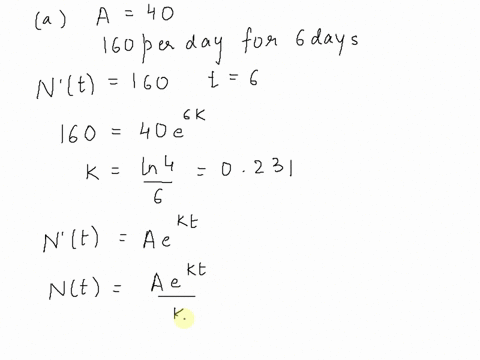 (a) A = 40
160 per day for 6 days
N'(t) = 160 t = 6
160 = 40e^{6K}
K = \frac{ln 4}{6} = 0.231
N'(t) = Ae^{Kt}
N(t) = \frac{Ae^{Kt}}{K}